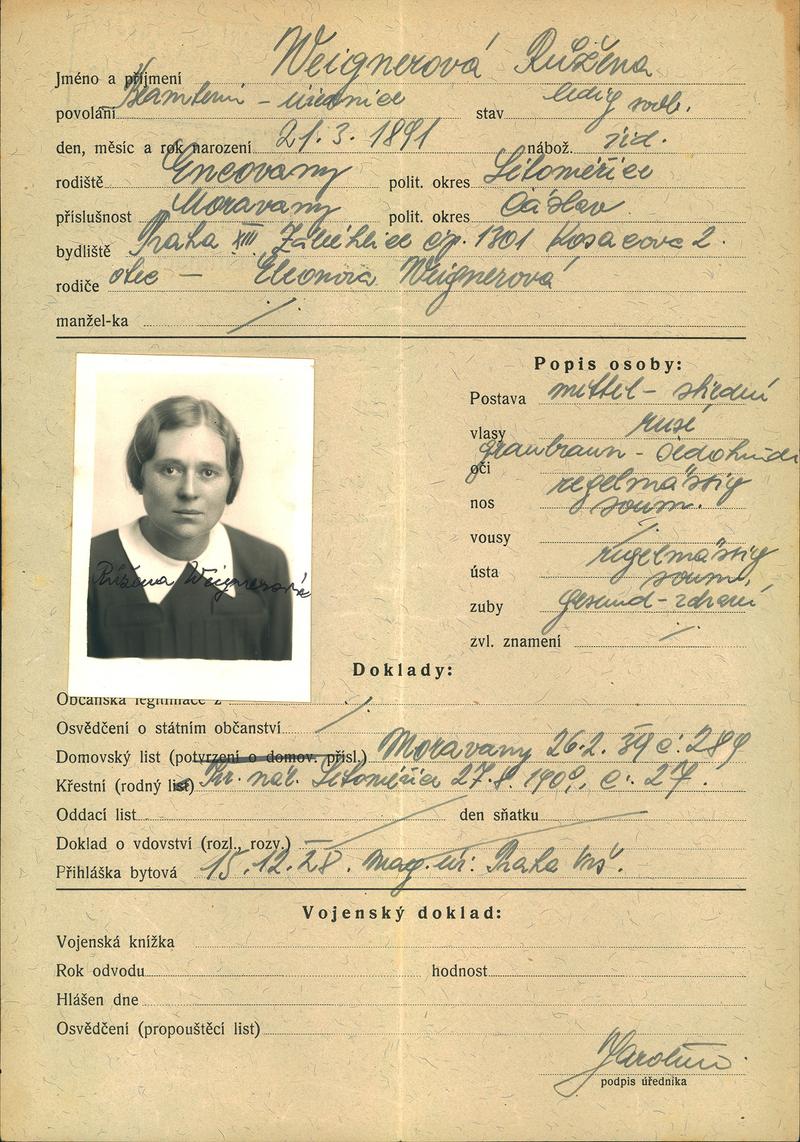 Jméno a příjmení Weignerová Růžena
povolání Beamtin - úřednice stav ledig svob.
den, měsíc a rok narození 21.3. 1891 nábož. žid.
rodiště Encovany polit. okres Litoměřice
příslušnost Moravany polit. okres Čáslav
bydliště Praha XIII, Záběhlice čp. 1301 Kosacova 2.
rodiče otec - Eleonora Weignerová
manžel-ka /
Popis osoby:
Postava mittel - střední
vlasy rusé
oči graubraun - šedohnědé
nos regelmässig
soum.
vousy /
ústa regelmässig
soum.
zuby gesund - zdravé
zvl. znamení /
Růžena Weignerová
Doklady:
Občanská legitimace z /
Osvědčení o státním občanství
Domovský list (potvrzení o domov. přísl.) Moravany 26.2. 39 č. 289
Křestní (rodný list) nál. Litoměřice 27.8. 1909, č. 27.
Oddací list den sňatku
Doklad o vdovství (rozl., rozv.) —
Přihláška bytová 15.12.28. mag. úř. Praha
Vojenský doklad:
Vojenská knížka
Rok odvodu hodnost
Hlášen dne
Osvědčení (propouštěcí list)
podpis úředníka